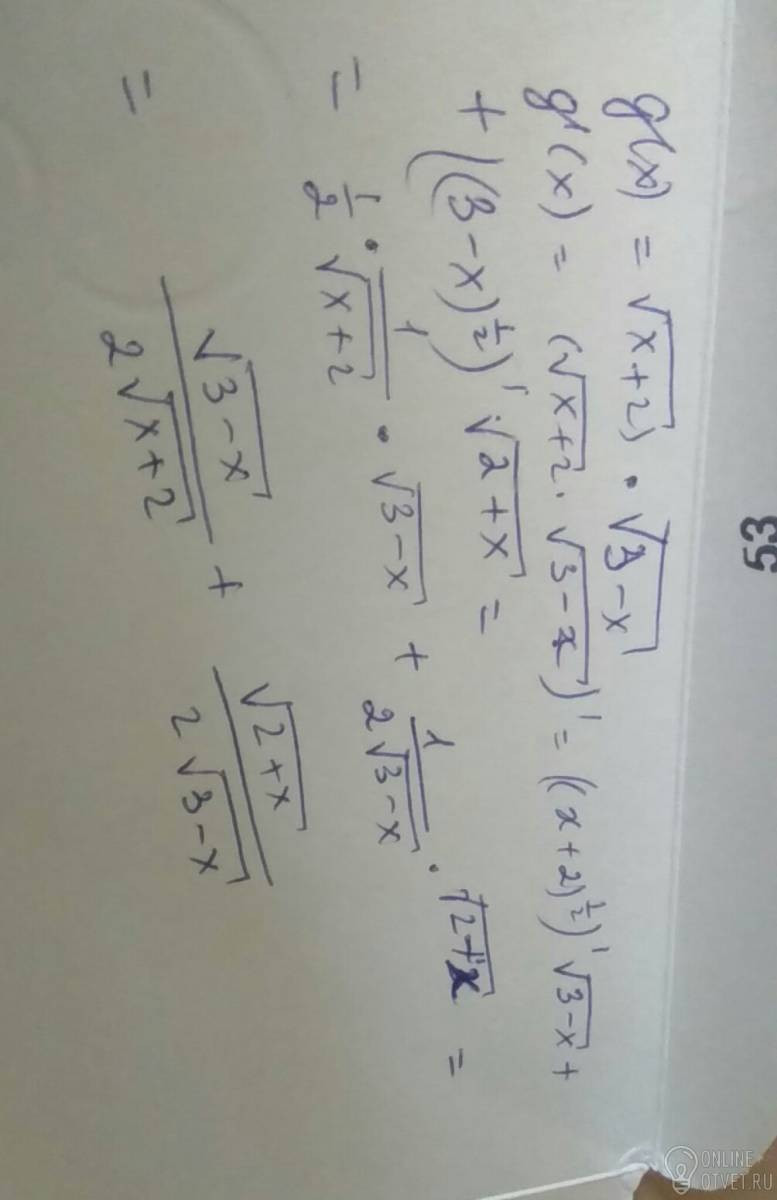 53
g(x) = √(x+2) · √(3-x)
g'(x) = (√(x+2) · √(3-x))' = ((x+2)^(1/2))' √(3-x) +
+ ((3-x)^(1/2))' √(2+x) =
= 1/2 · 1/√(x+2) · √(3-x) + 1/(2√(3-x)) · √(2+x) =
= √(3-x)/(2√(x+2)) + √(2+x)/(2√(3-x))
ONLINE
OTVET.RU